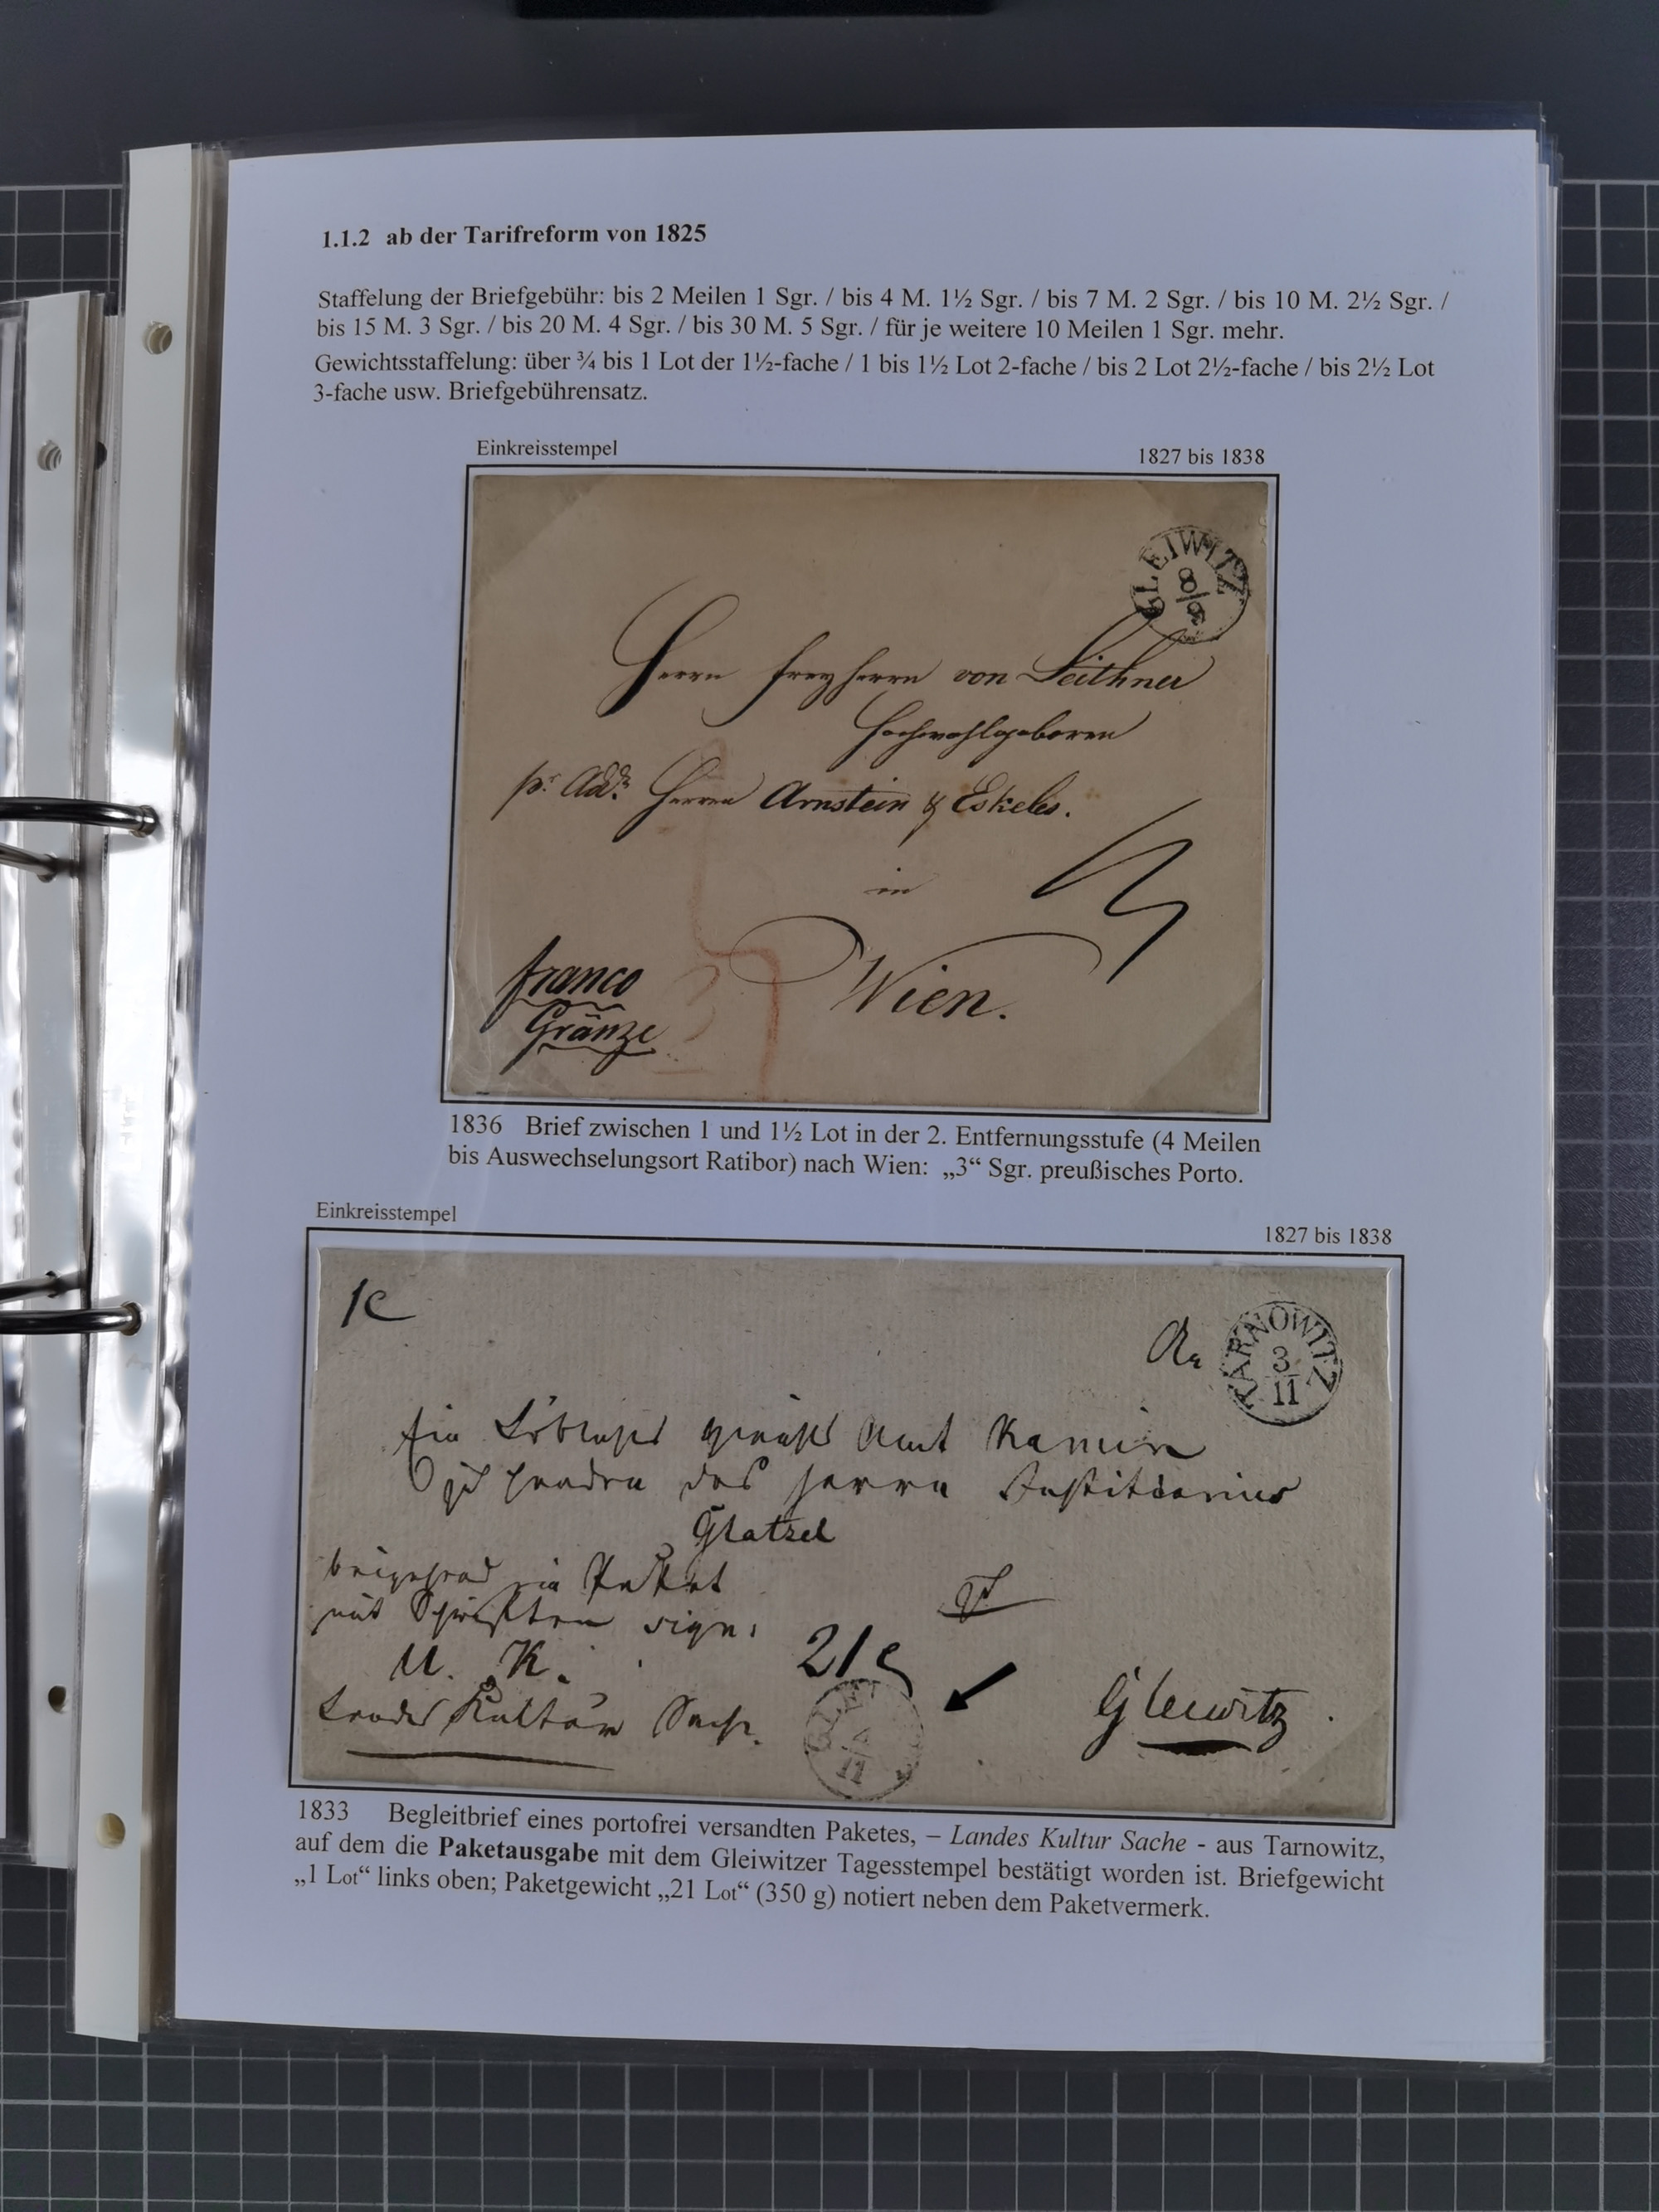 1.1.2 ab der Tarifreform von 1825
Staffelung der Briefgebühr: bis 2 Meilen 1 Sgr. / bis 4 M. 1½ Sgr. / bis 7 M. 2 Sgr. / bis 10 M. 2½ Sgr. /
bis 15 M. 3 Sgr. / bis 20 M. 4 Sgr. / bis 30 M. 5 Sgr. / für je weitere 10 Meilen 1 Sgr. mehr.
Gewichtsstaffelung: über ¾ bis 1 Lot der 1½-fache / 1 bis 1½ Lot 2-fache / bis 2 Lot 2½-fache / bis 2½ Lot
3-fache usw. Briefgebührensatz.
Einkreisstempel 1827 bis 1838
GLEIWITZ
8/9
Herrn Freyherrn von Leithner
Hochwohlgeboren
pr. Add. Herren Arnstein & Eskeles.
in
Wien.
franco
Gränze
1836 Brief zwischen 1 und 1½ Lot in der 2. Entfernungsstufe (4 Meilen
bis Auswechselungsort Ratibor) nach Wien: „3“ Sgr. preußisches Porto.
Einkreisstempel 1827 bis 1838
An
TARNOWITZ
3/11
Ein Löbliches Gericht Amt Kamin
zu Händen des Herrn Justitiarius
Glatzel
beigehend ein Paket
mit Schriften sign.
U. K.
21
Landes Kultur Sache.
Gleiwitz.
11
1833 Begleitbrief eines portofrei versandten Paketes, – Landes Kultur Sache - aus Tarnowitz,
auf dem die Paketausgabe mit dem Gleiwitzer Tagesstempel bestätigt worden ist. Briefgewicht
„1 Lot“ links oben; Paketgewicht „21 Lot“ (350 g) notiert neben dem Paketvermerk.